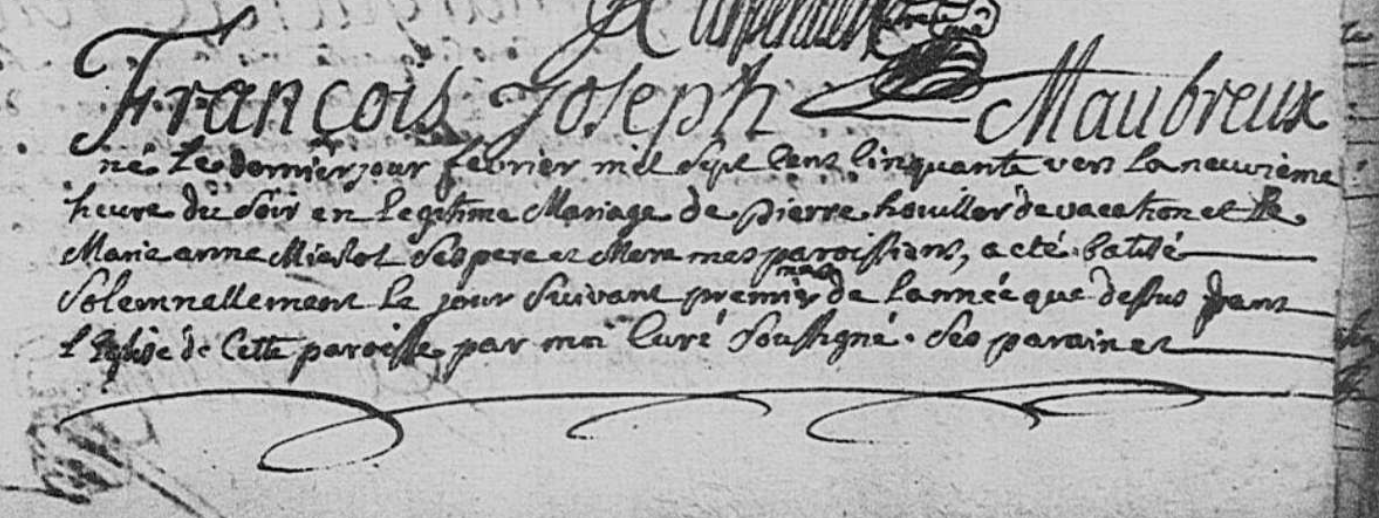 François Joseph Maubreux
né le dernier jour fevrier mil sept cens cinquante vers la neuvieme
heure du soir en legitime Mariage de pierre houiller de vacation et de
Marie anne Mierlot ses pere et Mere mes paroissiens, a eté batisé
solemnellement le jour suivant premier mars de lannée que dessus dans
l'Eglise de Cette paroisse par moi Curé soussigné. ses parain et